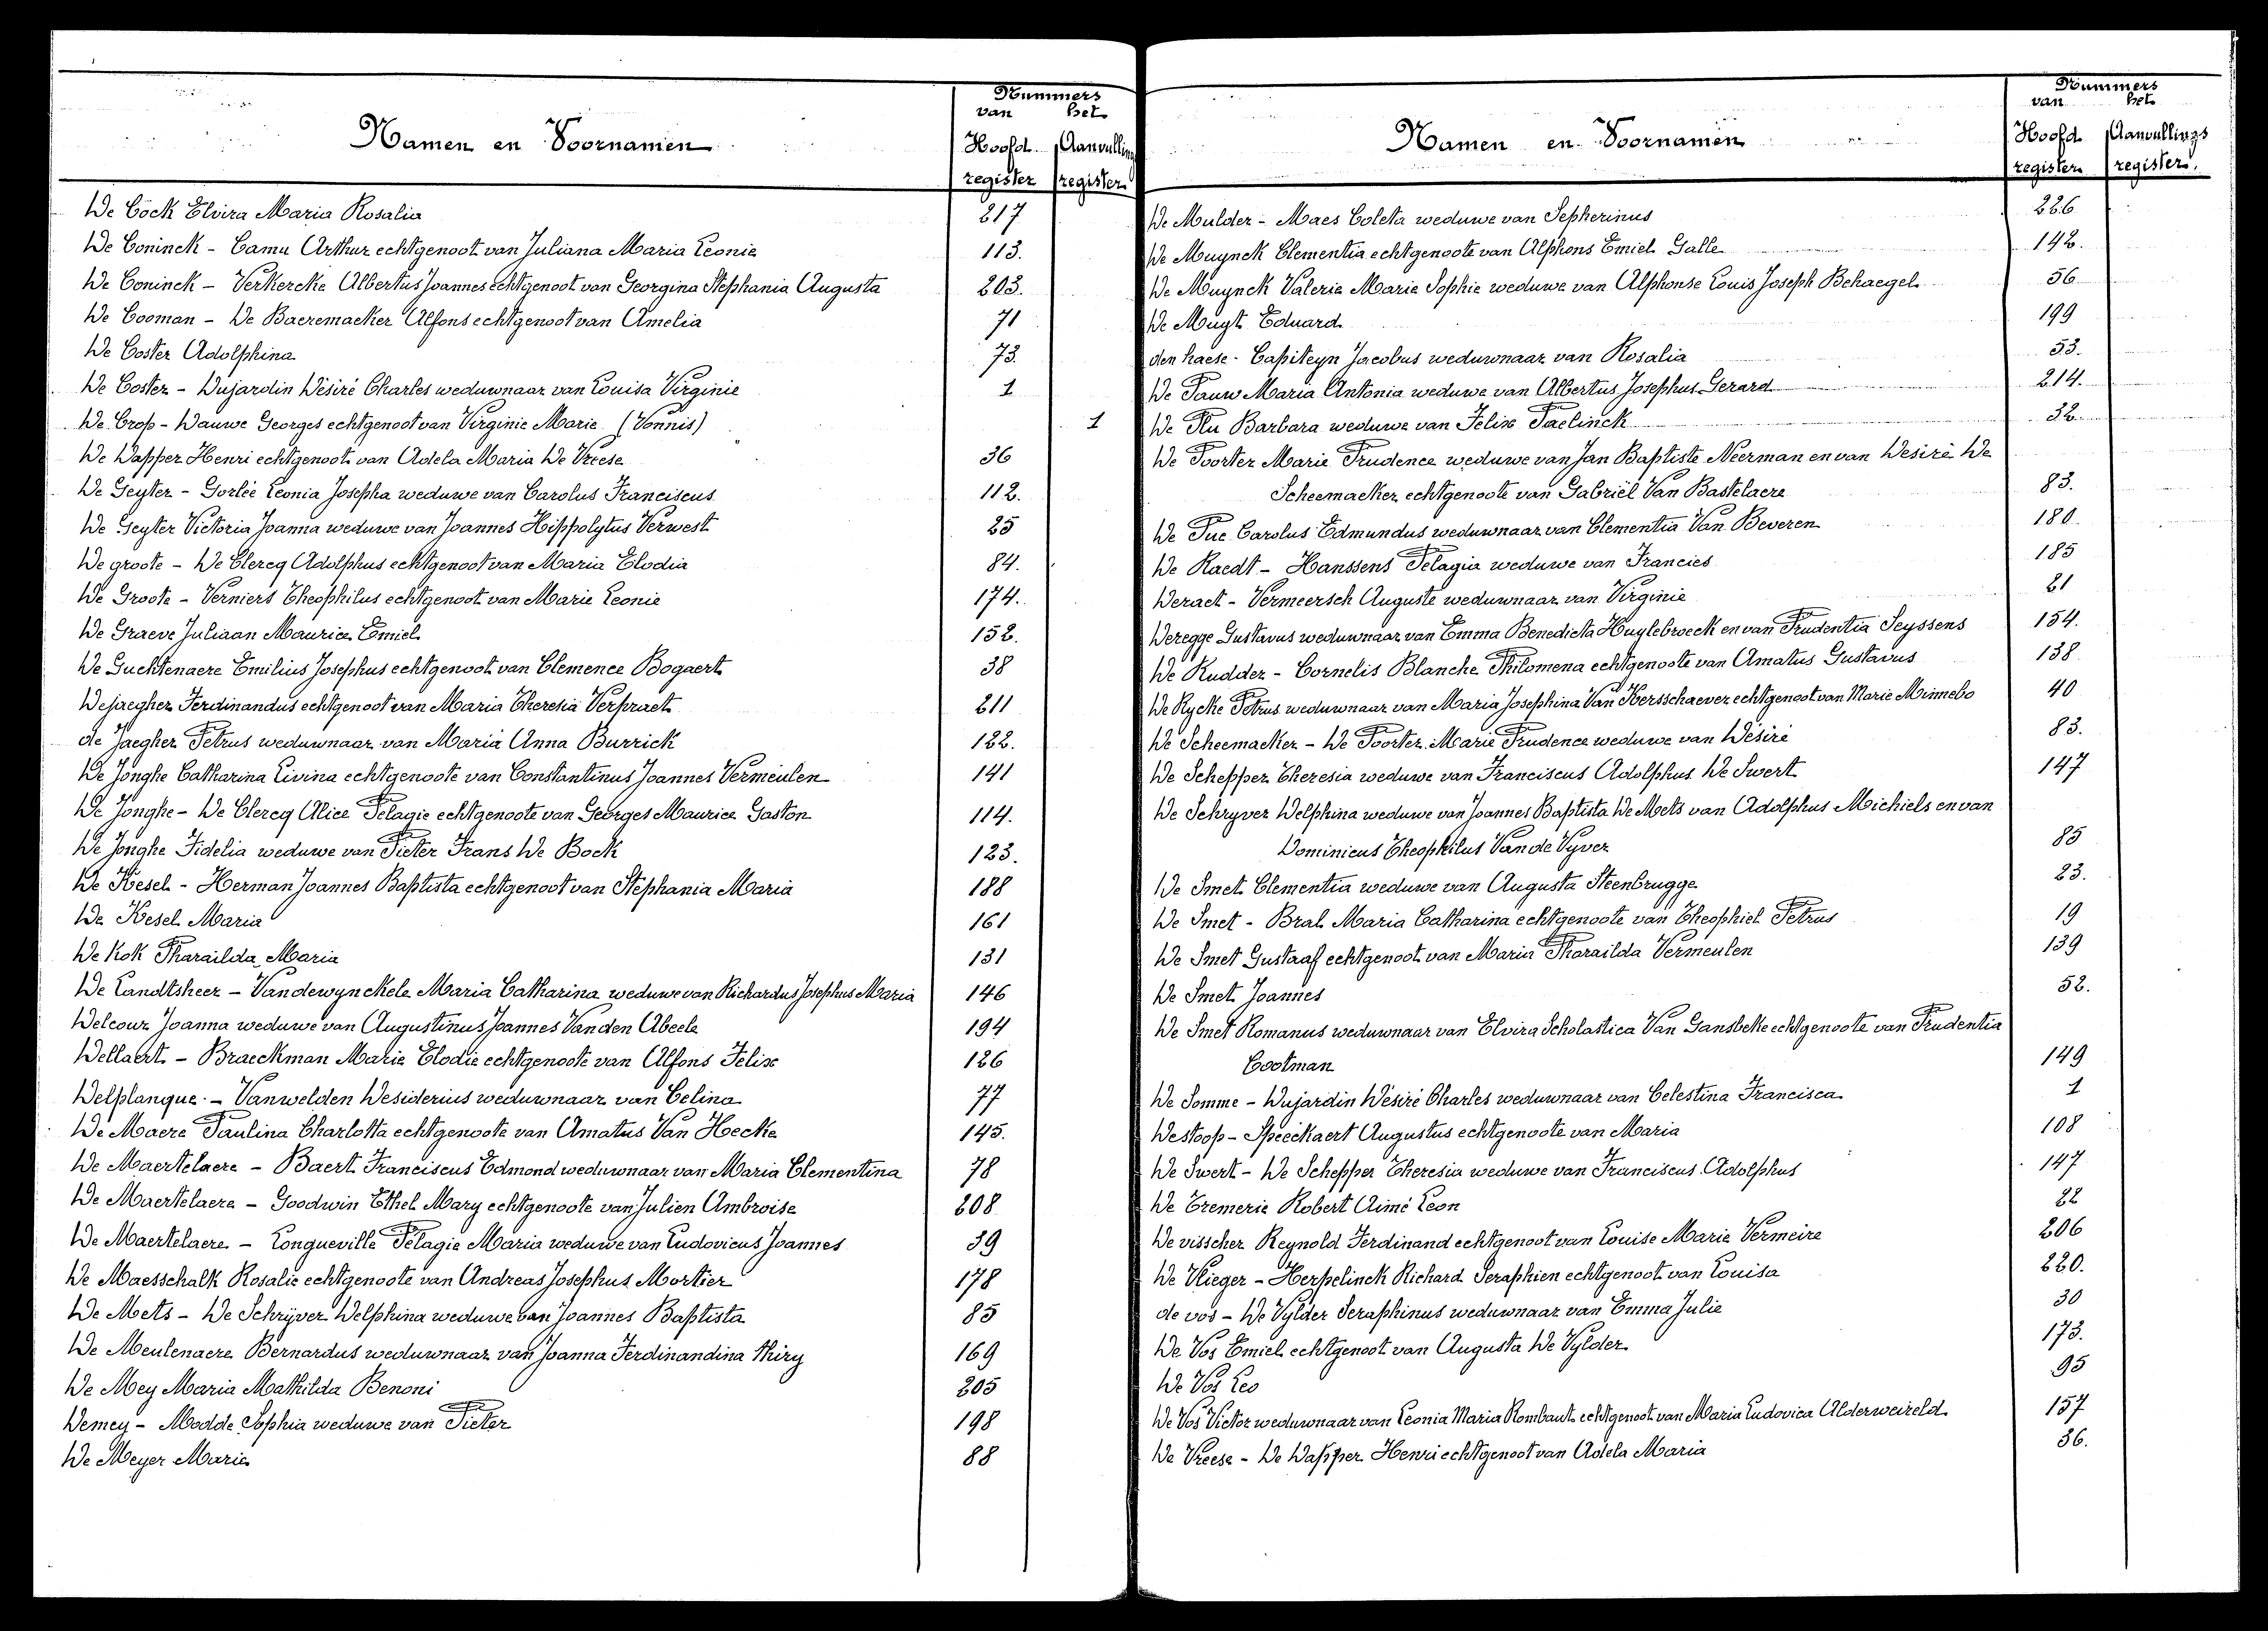 Nummers
van het
Namen en Voornamen
Hoofd Aanvulling
register register
De Cock Elvira Maria Rosalia 217
De Coninck - Camu Arthur echtgenoot van Juliana Maria Leonie 113.
De Coninck - Verkercke Albertus Joannes echtgenoot van Georgina Stephania Augusta 203.
De Cooman - De Baeremaeker Alfons echtgenoot van Amelia 71
De Coster Adolphina 73.
De Coster - Dujardin Désiré Charles weduwnaar van Louisa Virginie 1
De Crop - Dauwe Georges echtgenoot van Virginie Marie (Vonnis) 1
De Dapper Henri echtgenoot van Adela Maria De Vreese 36
De Geyter - Gorlée Leonia Josepha weduwe van Carolus Franciscus 112.
De Geyter Victoria Joanna weduwe van Joannes Hippolytus Verwest 25
De groote - De Clercq Adolphus echtgenoot van Maria Elodia 84.
De Groote - Verniers Theophilus echtgenoot van Marie Leonie 174.
De Graeve Juliaan Maurice Emiel 152.
De Guchtenaere Emilius Josephus echtgenoot van Clemence Bogaert 38
Dejaegher Ferdinandus echtgenoot van Maria Theresia Verpraet 211
de Jaegher Petrus weduwnaar van Maria Anna Burrick 122.
De Jonghe Catharina Livina echtgenoote van Constantinus Joannes Vermeulen 141
De Jonghe - De Clercq Alice Pelagie echtgenoote van Georges Maurice Gaston 114.
De Jonghe Fidelia weduwe van Pieter Frans De Bock 123.
De Kesel - Herman Joannes Baptista echtgenoot van Stephania Maria 188
De Kesel Maria 161
De Kok Pharaïlda Maria 131
De Landtsheer - Vandewynckele Maria Catharina weduwe van Richardus Josephus Maria 146
Delcour Joanna weduwe van Augustinus Joannes Vanden Abeele 194
Dellaert - Braeckman Marie Elodie echtgenoote van Alfons Felix 126
Delplanque - Vanwelden Desiderius weduwnaar van Celina 77
De Maere Paulina Charlotta echtgenoote van Amatus Van Hecke 145.
De Maertelaere - Baert Franciscus Edmond weduwnaar van Maria Clementina 78
De Maertelaere - Goodwin Ethel Mary echtgenoote van Julien Ambroise 208
De Maertelaere - Longueville Pelagie Maria weduwe van Ludovicus Joannes 39
De Maesschalk Rosalie echtgenoote van Andreas Josephus Mortier 178
De Mets - De Schryver Delphina weduwe van Joannes Baptista 85
De Meulenaere Bernardus weduwnaar van Joanna Ferdinandina Thiry 169
De Mey Maria Mathilda Benoni 205
Demey - Modde Sophia weduwe van Pieter 198
De Meyer Marie 88
Nummers
van het
Namen en Voornamen
Hoofd Aanvullings
register register.
De Mulder - Maes Coleta weduwe van Sepherinus 226
De Muynck Clementia echtgenoote van Alphons Emiel Galle 142.
De Muynck Valerie Marie Sophie weduwe van Alphonse Louis Joseph Behaegel 56
De Muyt Eduard 199
den haese - Capiteyn Jacobus weduwnaar van Rosalia 53.
De Pauw Maria Antonia weduwe van Albertus Josephus Gerard 214.
De Plu Barbara weduwe van Felix Paelinck 32
De Poorter Marie Prudence weduwe van Jan Baptiste Neerman en van Desiré De
Scheemaeker echtgenoote van Gabriël Van Bastelaere 83.
De Pue Carolus Edmundus weduwnaar van Clementia Van Beveren 180
De Raedt - Hanssens Pelagia weduwe van Francies 185
Deraet - Vermeersch Auguste weduwnaar van Virginie 21
Deregge Gustavus weduwnaar van Emma Benedicta Huylebroeck en van Prudentia Seyssens 154.
De Rudder - Cornelis Blanche Philomena echtgenoote van Amatus Gustavus 138
De Rycke Petrus weduwnaar van Maria Josephina Van Kersschaever echtgenoot van Marie Minnebo 40
De Scheemaeker - De Poorter Marie Prudence weduwe van Désiré 83.
De Schepper Theresia weduwe van Franciscus Adolphus De Swert 147
De Schryver Delphina weduwe van Joannes Baptista De Mets van Adolphus Michiels en van
Dominicus Theophilus Van de Vyver 85
De Smet Clementia weduwe van Augusta Steenbrugge 23.
De Smet - Bral Maria Catharina echtgenoote van Theophiel Petrus 19
De Smet Gustaaf echtgenoot van Maria Pharaïlda Vermeulen 139
De Smet Joannes 52.
De Smet Romanus weduwnaar van Elvira Scholastica Van Gansbeke echtgenoote van Prudentia
Cootman 149
De Somme - Dujardin Désiré Charles weduwnaar van Celestina Francisca 1
Destoop - Speeckaert Augustus echtgenoote van Maria 108
De Swert - De Schepper Theresia weduwe van Franciscus Adolphus 147
De Tremerie Robert Aimé Leon 22
De visscher Reynold Ferdinand echtgenoot van Louise Marie Vermeire 206
De Vlieger - Herpelinck Richard Seraphien echtgenoot van Louisa 220.
de vos - De Vylder Seraphinus weduwnaar van Emma Julie 30
De Vos Emiel echtgenoot van Augusta De Vylder 173.
De Vos Leo 95
De Vos Victor weduwnaar van Leonia Maria Rombaut echtgenoot van Maria Ludovica Alderweireld 157
De Vreese - De Dapper Henri echtgenoot van Adela Maria 36.